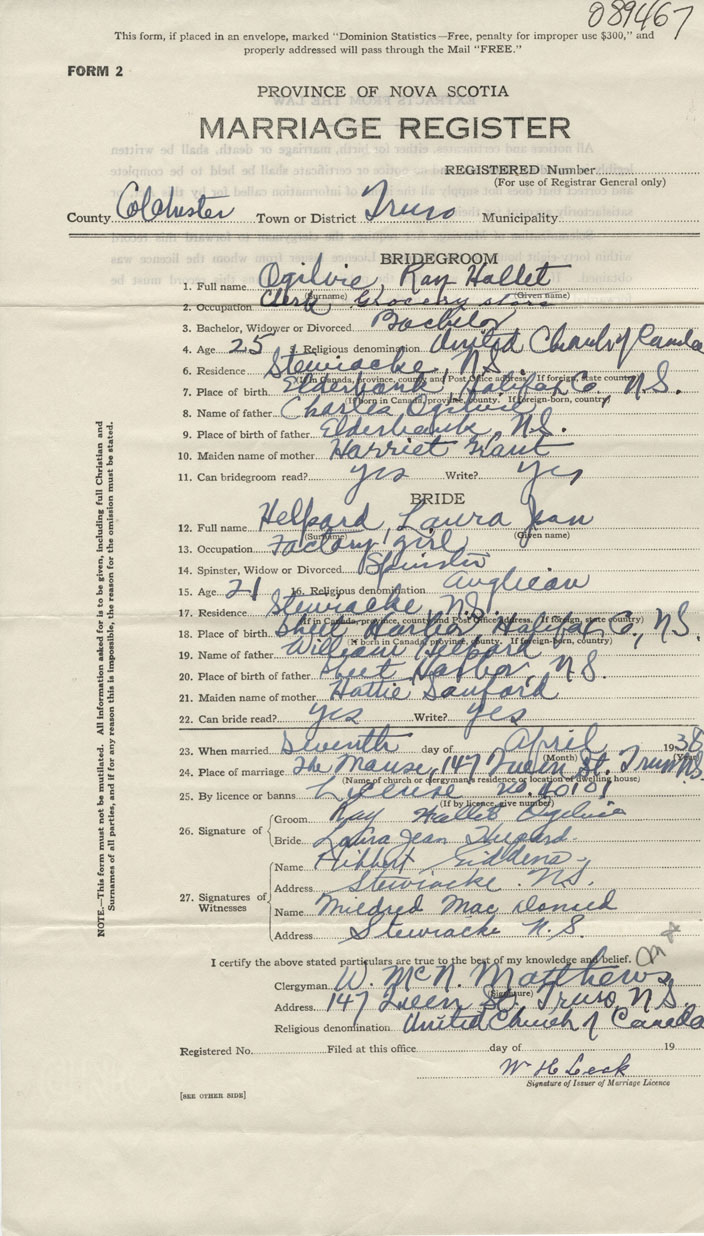 089467
This form, if placed in an envelope, marked "Dominion Statistics—Free, penalty for improper use $300," and
properly addressed will pass through the Mail "FREE."
FORM 2
PROVINCE OF NOVA SCOTIA
MARRIAGE REGISTER
REGISTERED Number
(For use of Registrar General only)
County Colchester Town or District Truro Municipality
BRIDEGROOM
1. Full name Ogilvie, Ray Hallet
(Surname) (Given name)
2. Occupation Clerk Grocery store
3. Bachelor, Widower or Divorced Bachelor
4. Age 25 5. Religious denomination United Church of Canada
6. Residence Stewiacke, N.S.
(If in Canada, province, county and Post Office address. If foreign, state country)
7. Place of birth Elderbank, Halifax Co, N.S.
(If born in Canada, province, county. If foreign-born, country)
8. Name of father Charles Ogilvie
9. Place of birth of father Elderbank, N.S.
10. Maiden name of mother Harriet Grant
11. Can bridegroom read? yes Write? yes
BRIDE
12. Full name Helpard, Laura Jean
(Surname) (Given name)
13. Occupation Factory girl
14. Spinster, Widow or Divorced Spinster
15. Age 21 16. Religious denomination Anglican
17. Residence Stewiacke N.S.
(If in Canada, province, county and Post Office address. If foreign, state country)
18. Place of birth Sheet Harbor, Halifax Co, N.S.
(If born in Canada, province, county. If foreign-born, country)
19. Name of father William Helpard
20. Place of birth of father Sheet Harbor, N.S.
21. Maiden name of mother Hattie Sanford
22. Can bride read? yes Write? yes
23. When married Seventh day of April 1938
(Month) (Year)
24. Place of marriage The Manse, 147 Queen St. Truro N.S.
(Name of church or clergyman's residence or location of dwelling house)
25. By licence or banns License no. 40101
(If by licence, give number)
26. Signature of Groom Ray Hallet Ogilvie
Bride Laura Jean
27. Signatures of Witnesses Name Hibbert Giddens
Address Stewiacke N.S.
Name Mildred Mac Donald
Address Stewiacke N.S.
I certify the above stated particulars are true to the best of my knowledge and belief.
Clergyman W. McN. Matthews
(Signature)
Address 147 Queen St. Truro, N.S.
Religious denomination United Church of Canada
Registered No. Filed at this office day of 19
W H Leck
Signature of Issuer of Marriage Licence
[SEE OTHER SIDE]
NOTE.—This form must not be mutilated. All information asked for is to be given, including full Christian and
Surnames of all parties, and if for any reason this is impossible, the reason for the omission must be stated.